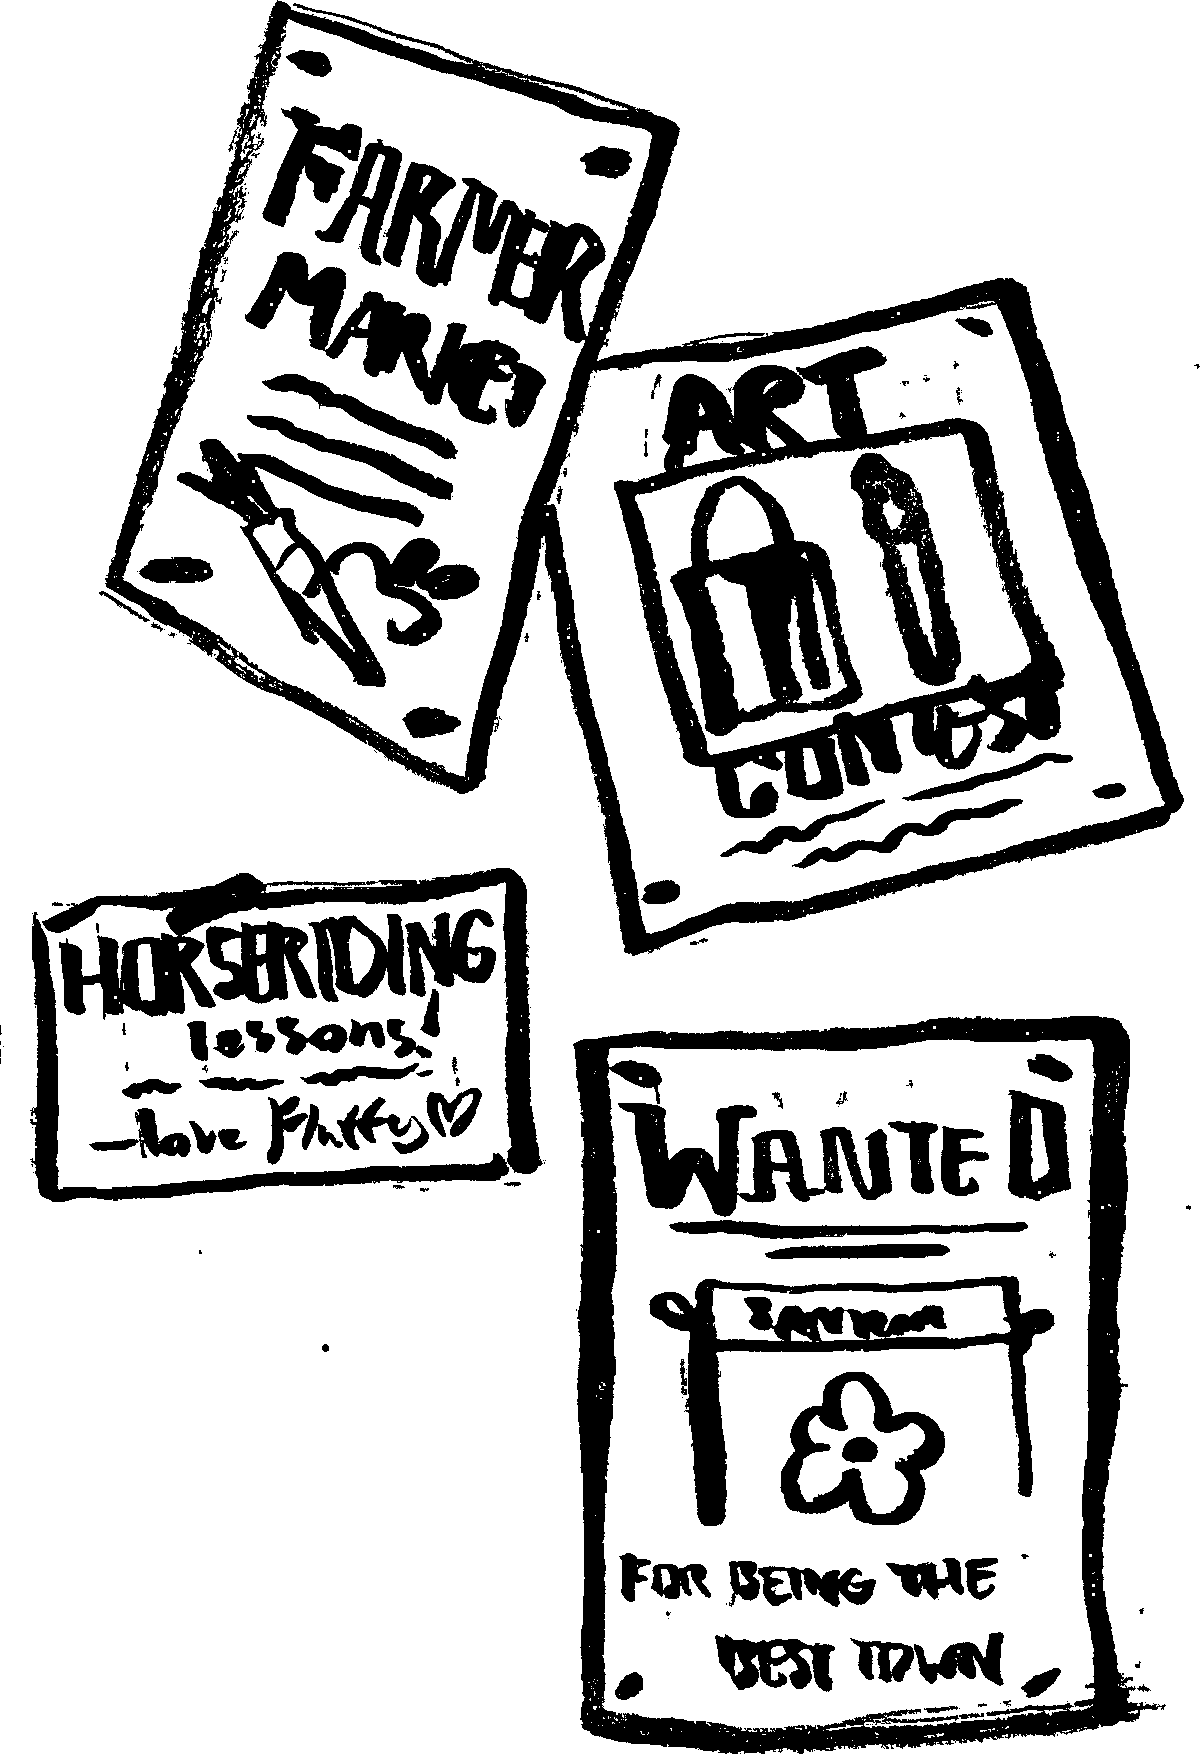 FARMER
MARKET
ART
CONTEST
HORSERIDING
lessons!
-love Fluffy♡
WANTED
FOR BEING THE
BEST TOWN